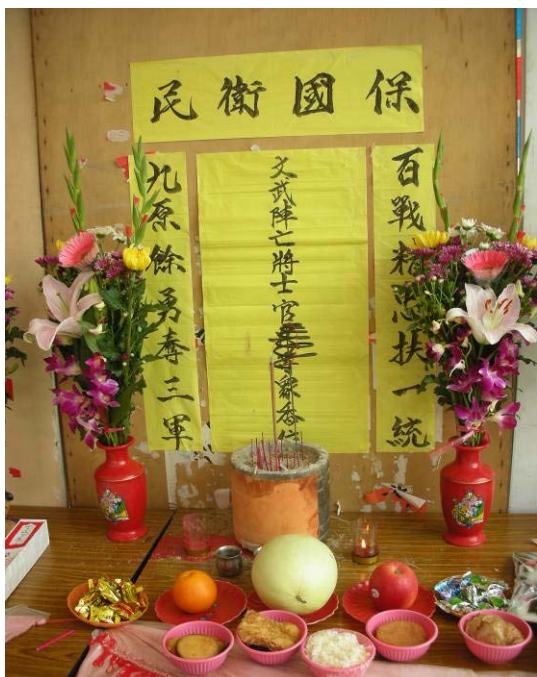 保國衛民
百戰精忠扶一統
文武陣亡將士官兵等眾香位
九原餘勇奪三軍